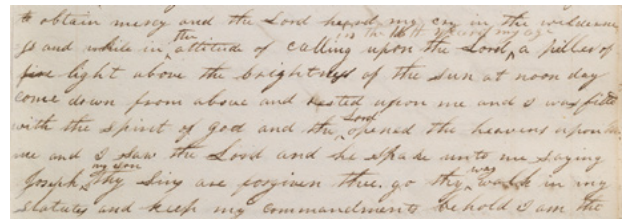 to obtain mercy and the Lord heard my cry in the wilderne
ss and while in the attitude of calling upon the Lord in the 16th year of my age a piller of
fire light above the brightness of the sun at noon day
come down from above and rested upon me and I was filled
with the spirit of god and the Lord opened the heavens upon
me and I saw the Lord and he spake unto me saying
Joseph my son thy sins are forgiven thee. go thy way walk in my
statutes and keep my commandments behold I am the